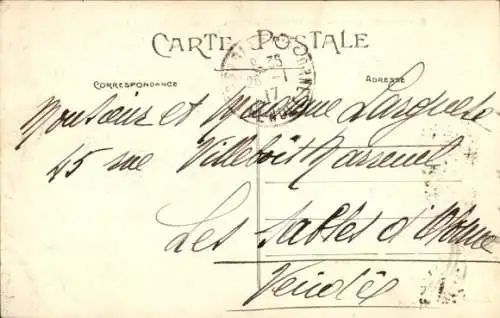 CARTE POSTALE
CORRESPONDANCE
ADRESSE
8 35
26 - 1
17
Monsieur et Madame
45 rue Villebois Mareuil
Les Sables d'Olonne
Vendée